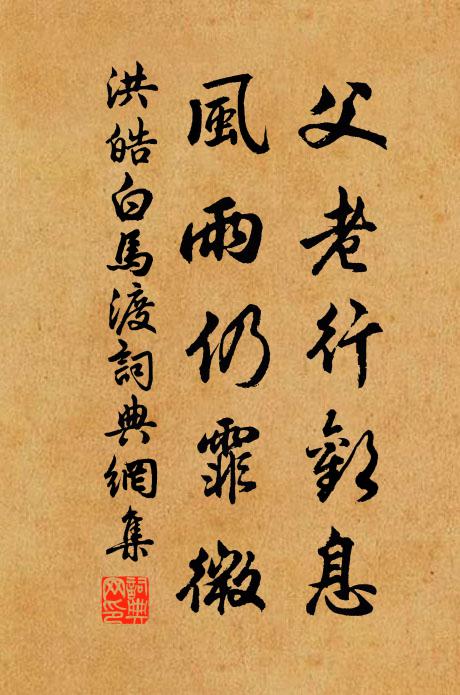 父老行歎息
風雨仍霏微
洪皓白馬渡詞典網集
詞典网印